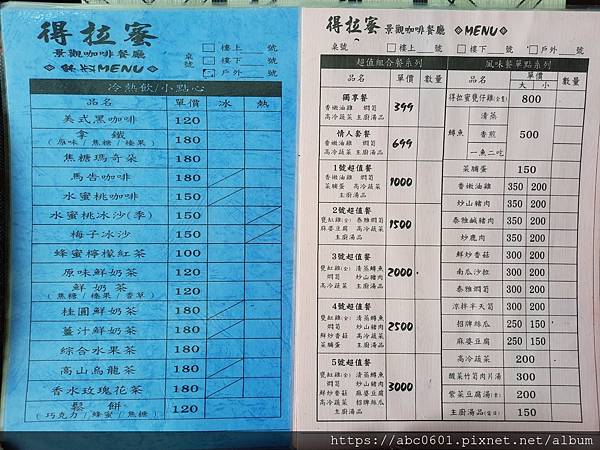 得拉蜜
景觀咖啡餐廳
飲料MENU
桌號
樓上 號
樓下 號
戶外 號
冷熱飲/小點心
品名 單價 冰 熱
美式黑咖啡 120
拿鐵 180
(原味/焦糖/榛果)
焦糖瑪奇朵 180
馬告咖啡 180
水蜜桃咖啡 150
水蜜桃冰沙(季) 150
梅子冰沙 150
蜂蜜檸檬紅茶 100
原味鮮奶茶 120
鮮奶茶 120
(焦糖/榛果/香草)
桂圓鮮奶茶 180
薑汁鮮奶茶 180
綜合水果茶 180
高山烏龍茶 180
香水玫瑰花茶 180
鬆餅 120
(巧克力/蜂蜜/焦糖)
得拉蜜 景觀咖啡餐廳 MENU
桌號 樓上 號 樓下 號 戶外 號
超值組合餐系列
品名 單價 數量
獨享餐 399
香嫩油雞 燜筍
高冷蔬菜 主廚湯品
情人套餐 699
香嫩油雞 燜筍
高冷蔬菜 主廚湯品
1號超值餐 1000
香嫩油雞 燜筍
菜脯蛋 高冷蔬菜
主廚湯品
2號超值餐 1500
甕缸雞(全) 泰雅燜筍
麻婆豆腐 高冷蔬菜
主廚湯品
3號超值餐 2000
甕缸雞(全) 清蒸鱒魚
燜筍 炒山豬肉
高冷蔬菜 主廚湯品
4號超值餐 2500
甕缸雞(全) 清蒸鱒魚
燜筍 炒山豬肉
鮮炒香菇 高冷蔬菜
菜脯蛋 主廚湯品
5號超值餐 3000
甕缸雞(全) 清蒸鱒魚
燜筍 炒山豬肉
鮮炒香菇 麻婆豆腐
高冷蔬菜 香嫩油雞
主廚湯品
風味餐單點系列
品名 單價 數量
大 小
得拉蜜甕仔雞(全隻) 800
鱒魚 500
清蒸
香煎
一魚二吃
菜脯蛋 150
香嫩油雞 350 200
炒山豬肉 350 200
泰雅鹹豬肉 350 200
炒鹿肉 350 200
鮮炒香菇 300 200
南瓜沙拉 300 200
泰雅燜筍 300 200
涼拌半天筍 300 200
招牌絲瓜 250 150
麻婆豆腐 250 150
高冷蔬菜 200
酸菜竹筍肉片湯 300
紫菜豆腐湯(素) 200
主廚湯品(當日) 150
https://abc0601.pixnet.net/album